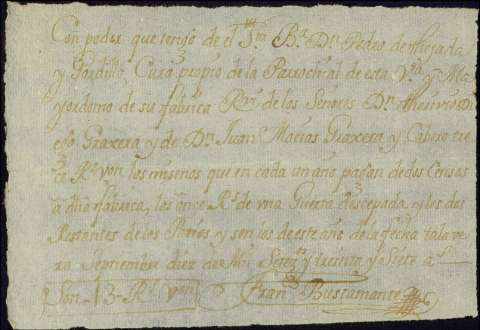 Con poder que tengo de el Sr. Br. Dn. Pedro de
y Gordillo, Cura propio de la Parrochial de esta Va. y Ma
yordomo de su fabrica Rvi. de los Señores Dn.
Graxera y de Dn. Juan Macias Graxera y Cabeso tre
ce Rs. von. los mismos que en cada un año pagan de dos Censos
a dha fabrica, los once Rs. de vna Guerta descepada, y los dos
Restantes de los y son los de este año de la fecha talave
ra Septiembre diez de Mil Setezos. y treinta y Siete as.
Son-13-Rs. von. Fran. Bustamante